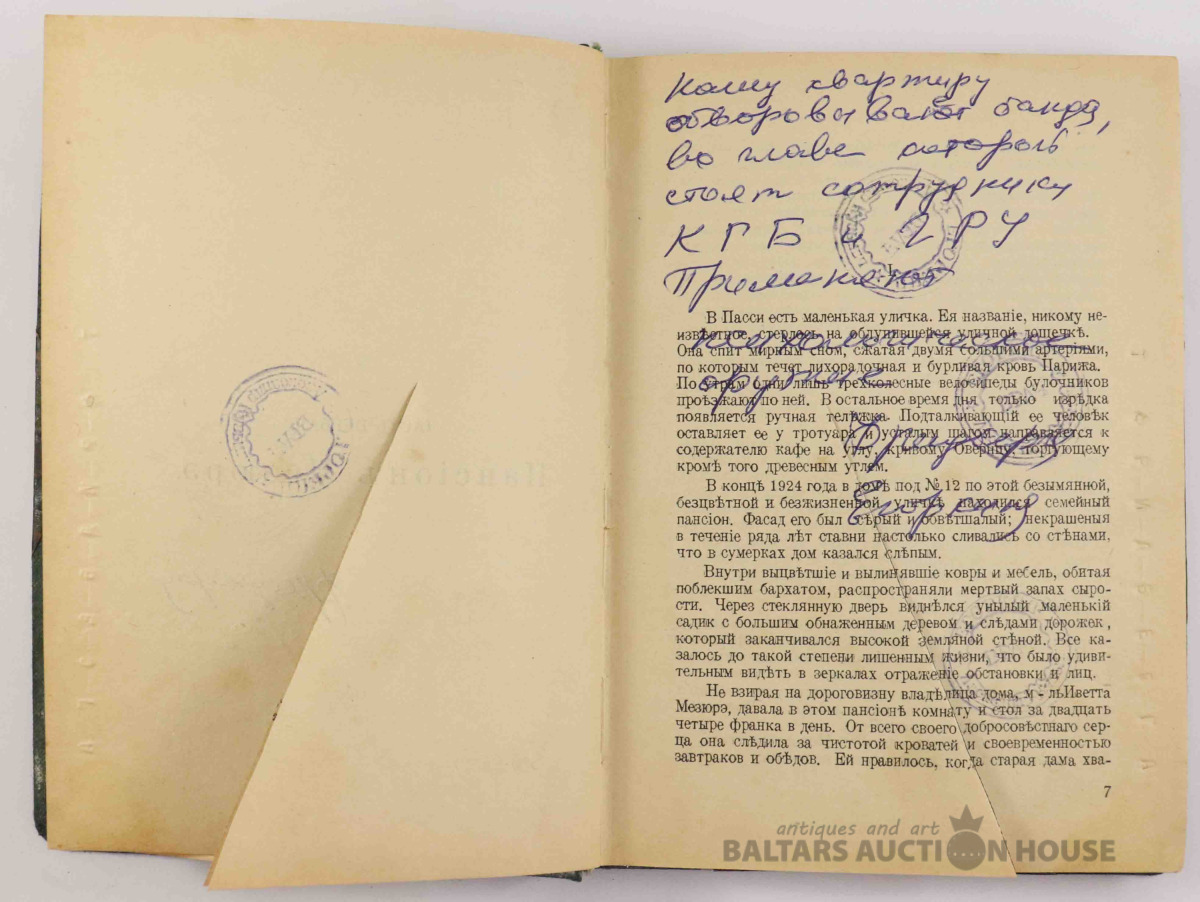 нашу квартиру
обворовывают банда,
во главе которой
стоят сотрудники
КГБ и ГРУ
Применяют
психологическое
оружие
I
В Пасси есть маленькая уличка. Ея названіе, никому не-
извѣстное, стерлось на облупившейся уличной дощечкѣ.
Она спит мирным сном, сжатая двумя большими артеріями,
по которым течет лихорадочная и бурливая кровь Парижа.
По утрам одни лишь трехколесные велосипеды булочников
проѣзжают по ней. В остальное время дня только изрѣдка
появляется ручная телѣжка. Подталкивающій ее человѣк
оставляет ее у тротуара и усталым шагом направляется к
содержателю кафе на углу, кривому Овернцу, торгующему
кромѣ того древесным углем.
В концѣ 1924 года в домѣ под № 12 по этой безымянной,
безцвѣтной и безжизненной уличкѣ находился семейный
пансіон. Фасад его был сѣрый и обветшалый; некрашеныя
в теченіе ряда лѣт ставни настолько сливались со стѣнами,
что в сумерках дом казался слѣпым.
Внутри выцвѣтшіе и вылинявшіе ковры и мебель, обитая
поблекшим бархатом, распространяли мертвый запах сыро-
сти. Через стеклянную дверь виднѣлся унылый маленькій
садик с большим обнаженным деревом и слѣдами дорожек,
который заканчивался высокой земляной стѣной. Все ка-
залось до такой степени лишенным жизни, что было удиви-
тельным видѣть в зеркалах отраженіе обстановки и лиц.
Не взирая на дороговизну владѣлица дома, м - льИветта
Мезюрэ, давала в этом пансіонѣ комнату и стол за двадцать
четыре франка в день. От всего своего добросовѣстнаго сер-
дца она слѣдила за чистотой кроватей и своевременностью
завтраков и обѣдов. Ей нравилось, когда старая дама хва-
7
antiques and art
BALTARS AUCTION HOUSE